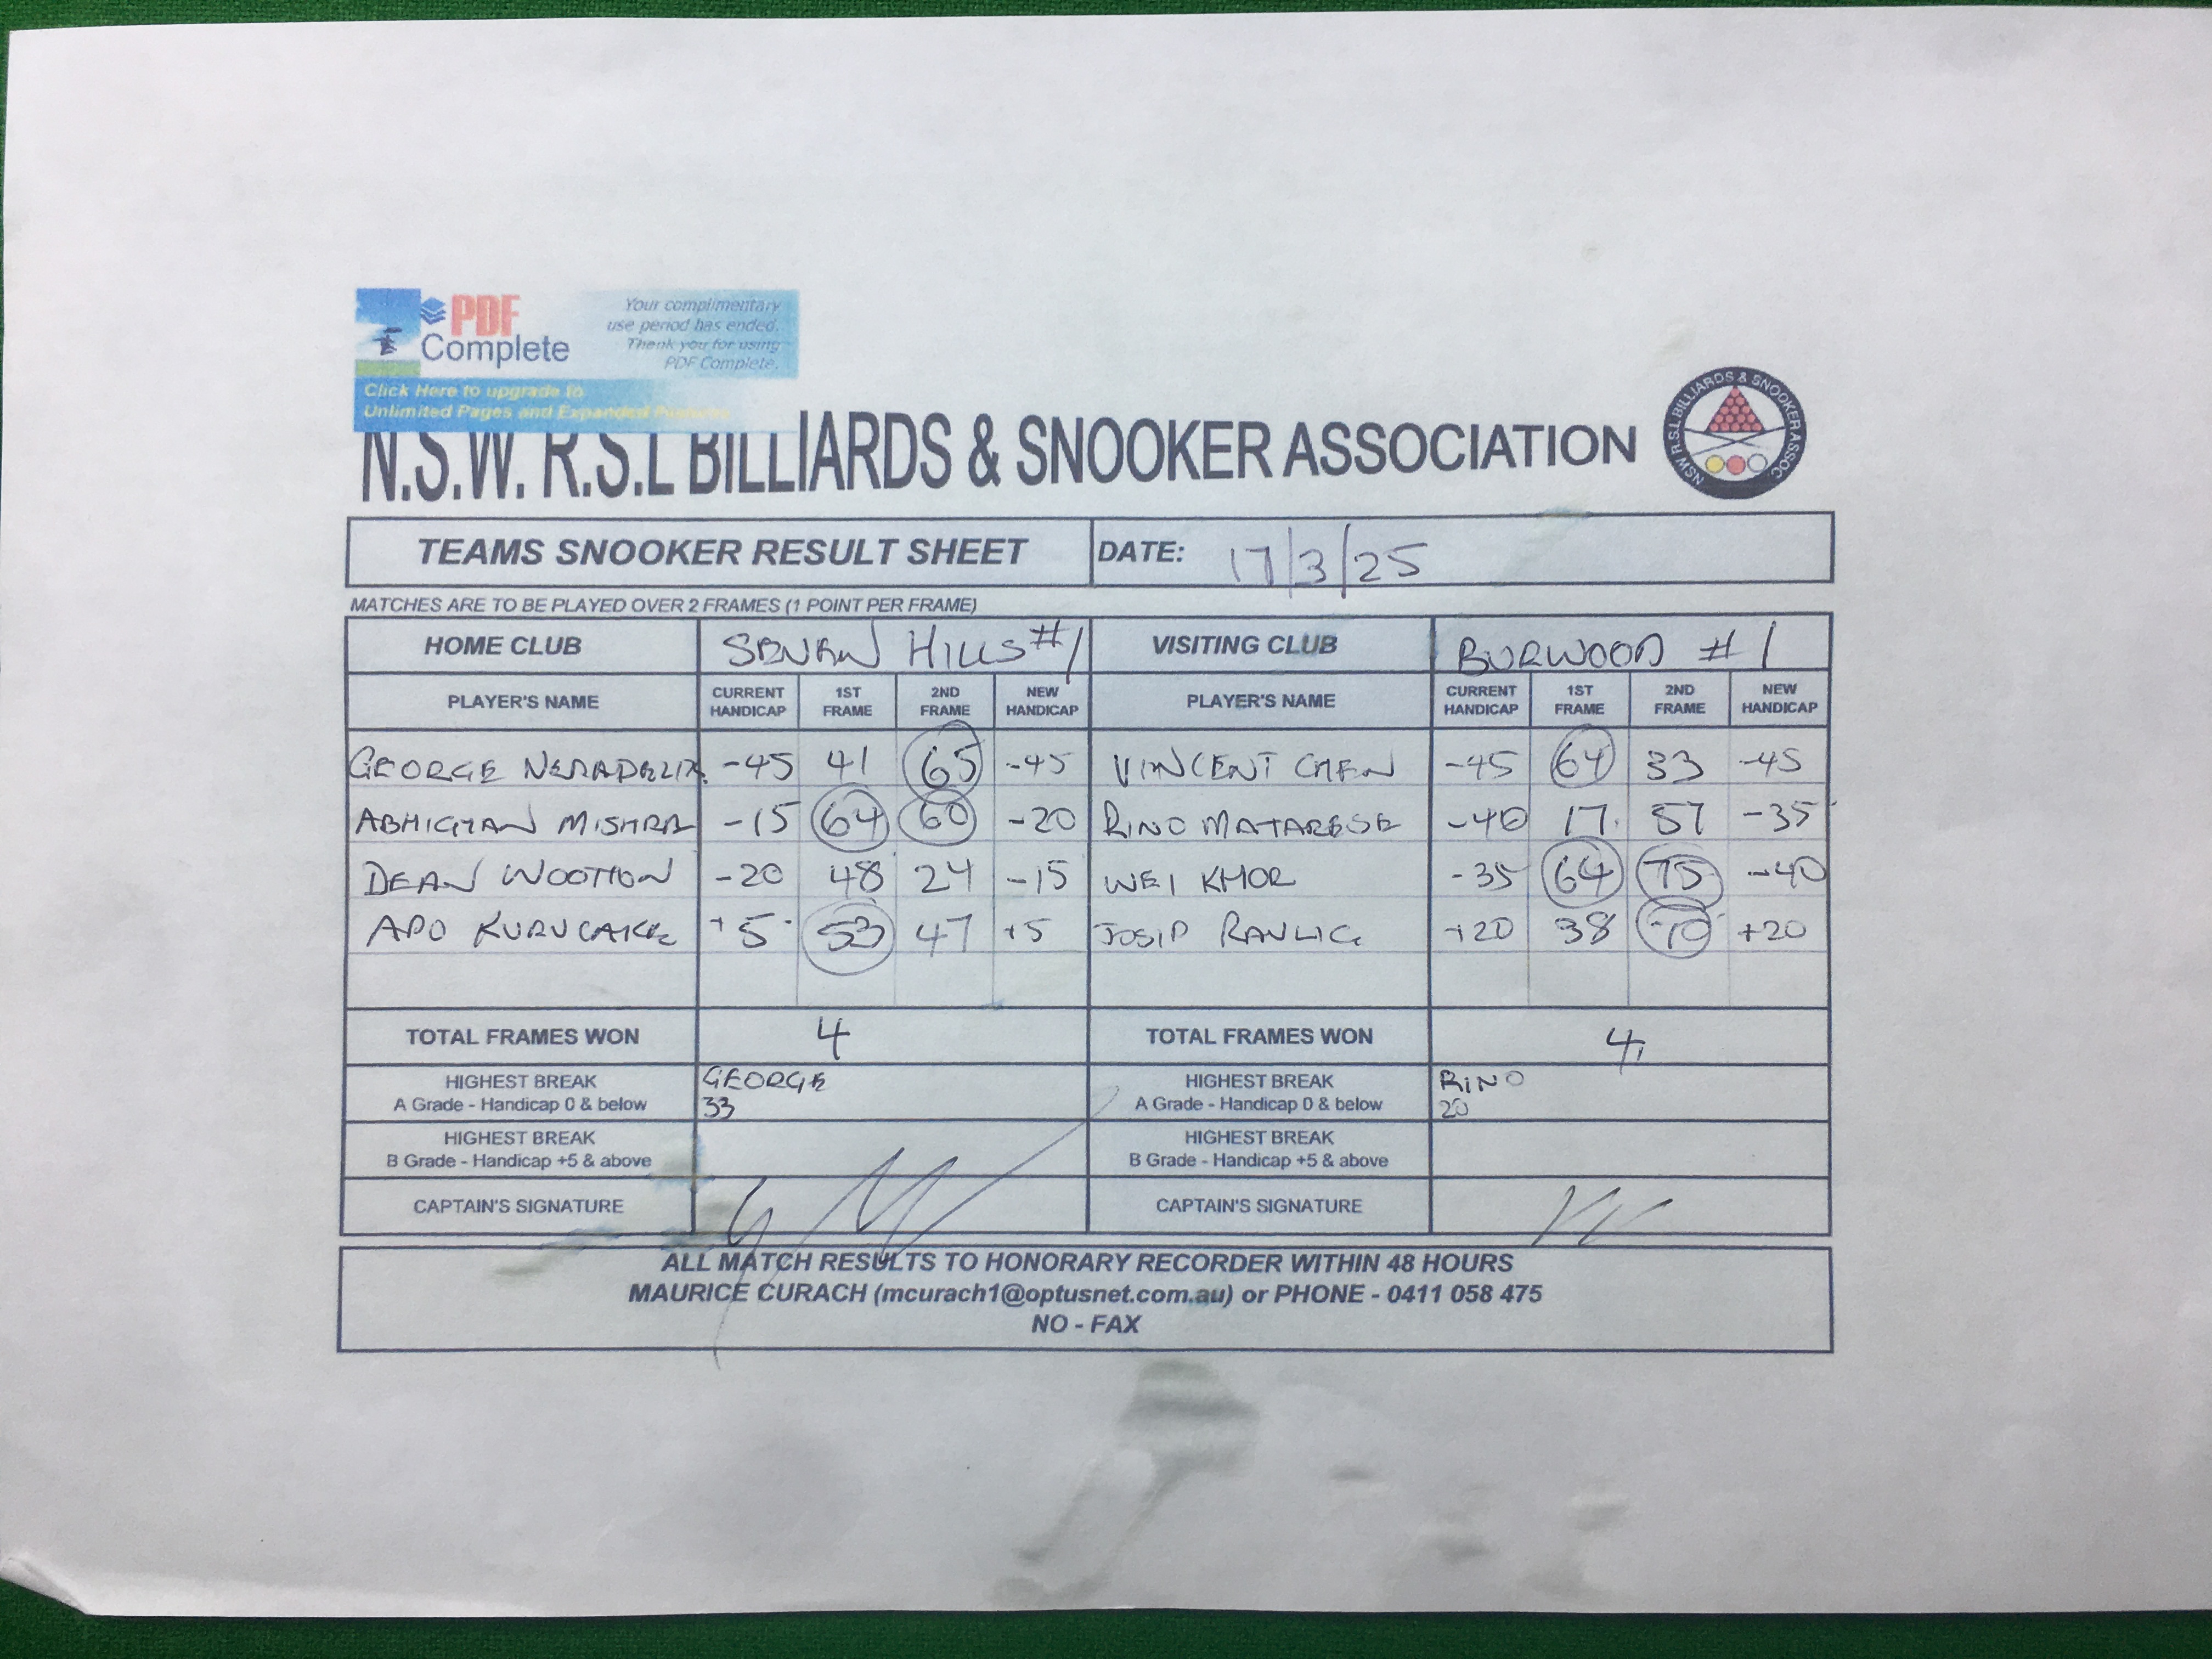 PDF
Complete
Your complimentary
use period has ended.
Thank you for using
PDF Complete.
Click Here to upgrade to
Unlimited Pages and Expanded Features
N.S.W. R.S.L BILLIARDS & SNOOKER ASSOCIATION
NSW R.S.L BILLIARDS & SNOOKER ASSOC.
TEAMS SNOOKER RESULT SHEET DATE: 17/3/25
MATCHES ARE TO BE PLAYED OVER 2 FRAMES (1 POINT PER FRAME)
HOME CLUB HILLS #1 VISITING CLUB BURWOOD #1
PLAYER'S NAME CURRENT HANDICAP 1ST FRAME 2ND FRAME NEW HANDICAP PLAYER'S NAME CURRENT HANDICAP 1ST FRAME 2ND FRAME NEW HANDICAP
GEORGE -45 41 65 -45 VINCENT CHEN -45 64 33 -45
ABHIGYAN MISHRA -15 64 60 -20 RINO MATARESE -40 17 57 -35
DEAN WOOTTON -20 48 24 -15 WEI KHOR -35 64 75 -40
APO +5 53 47 +5 JOSIP RAVLIC +20 38 70 +20
TOTAL FRAMES WON 4 TOTAL FRAMES WON 4
HIGHEST BREAK GEORGE HIGHEST BREAK RINO
A Grade - Handicap 0 & below 33 A Grade - Handicap 0 & below 20
HIGHEST BREAK HIGHEST BREAK
B Grade - Handicap +5 & above B Grade - Handicap +5 & above
CAPTAIN'S SIGNATURE CAPTAIN'S SIGNATURE
ALL MATCH RESULTS TO HONORARY RECORDER WITHIN 48 HOURS
MAURICE CURACH (mcurach1@optusnet.com.au) or PHONE - 0411 058 475
NO - FAX